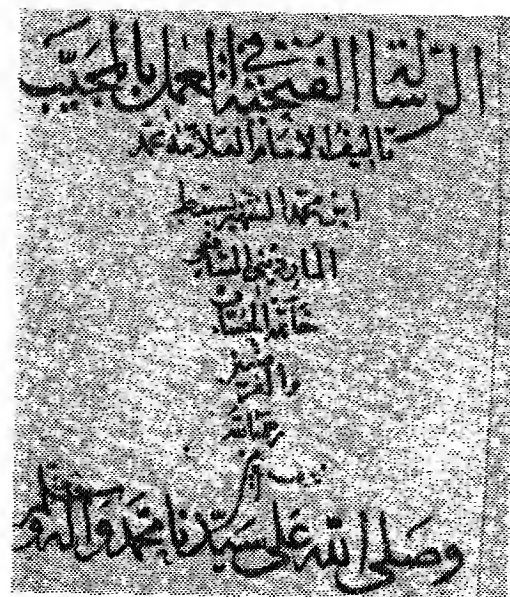 الرسالة الفتحية في العمل بالمجيب
تأليف الامام العلامة محمد
ابن محمد الشهير بسبط
المارديني الشافعي
خاتمة الحساب
والفرضيين
رحمه الله
وصلى الله على سيدنا محمد واله وسلم